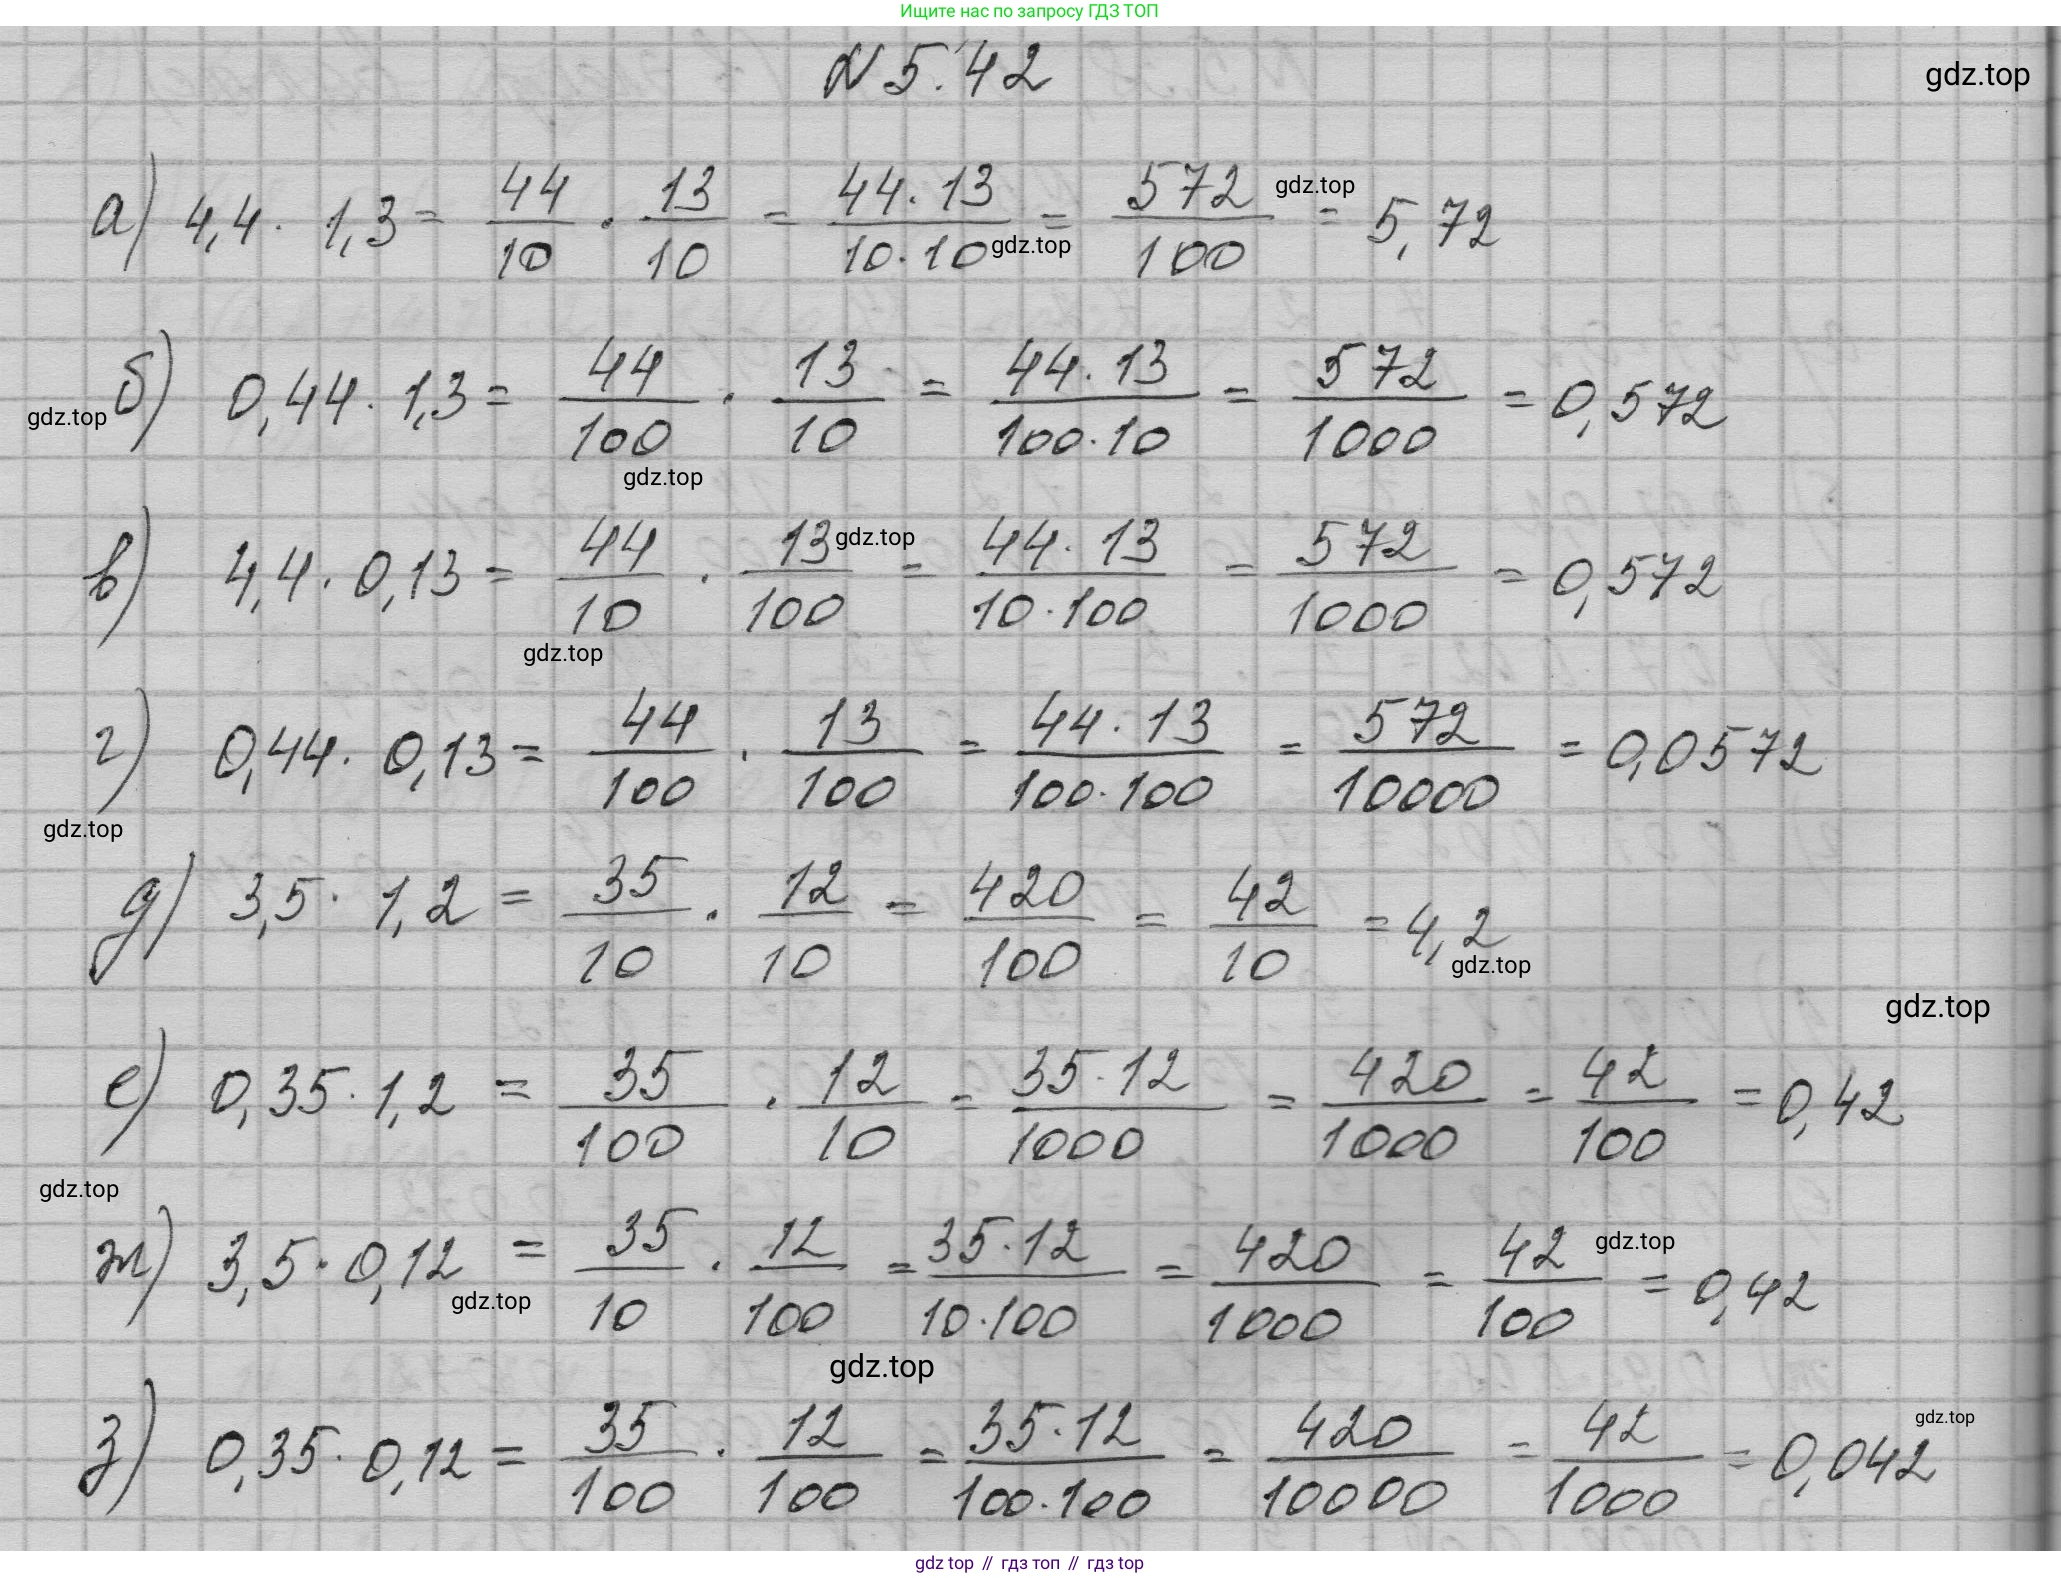 Ищите нас по запросу ГДЗ ТОП
№ 5.42
gdz.top
а) 4,4 · 1,3 = 44/10 · 13/10 = 44·13/10·10 = 572/100 = 5,72
gdz.top
gdz.top
б) 0,44 · 1,3 = 44/100 · 13/10 = 44·13/100·10 = 572/1000 = 0,572
gdz.top
gdz.top
в) 4,4 · 0,13 = 44/10 · 13/100 = 44·13/10·100 = 572/1000 = 0,572
gdz.top
gdz.top
г) 0,44 · 0,13 = 44/100 · 13/100 = 44·13/100·100 = 572/10000 = 0,0572
gdz.top
д) 3,5 · 1,2 = 35/10 · 12/10 = 420/100 = 42/10 = 4,2
gdz.top
gdz.top
е) 0,35 · 1,2 = 35/100 · 12/10 = 35·12/1000 = 420/1000 = 42/100 = 0,42
gdz.top
ж) 3,5 · 0,12 = 35/10 · 12/100 = 35·12/10·100 = 420/1000 = 42/100 = 0,42
gdz.top
gdz.top
gdz.top
з) 0,35 · 0,12 = 35/100 · 12/100 = 35·12/100·100 = 420/10000 = 42/1000 = 0,042
gdz.top
gdz top // гдз топ // гдз top